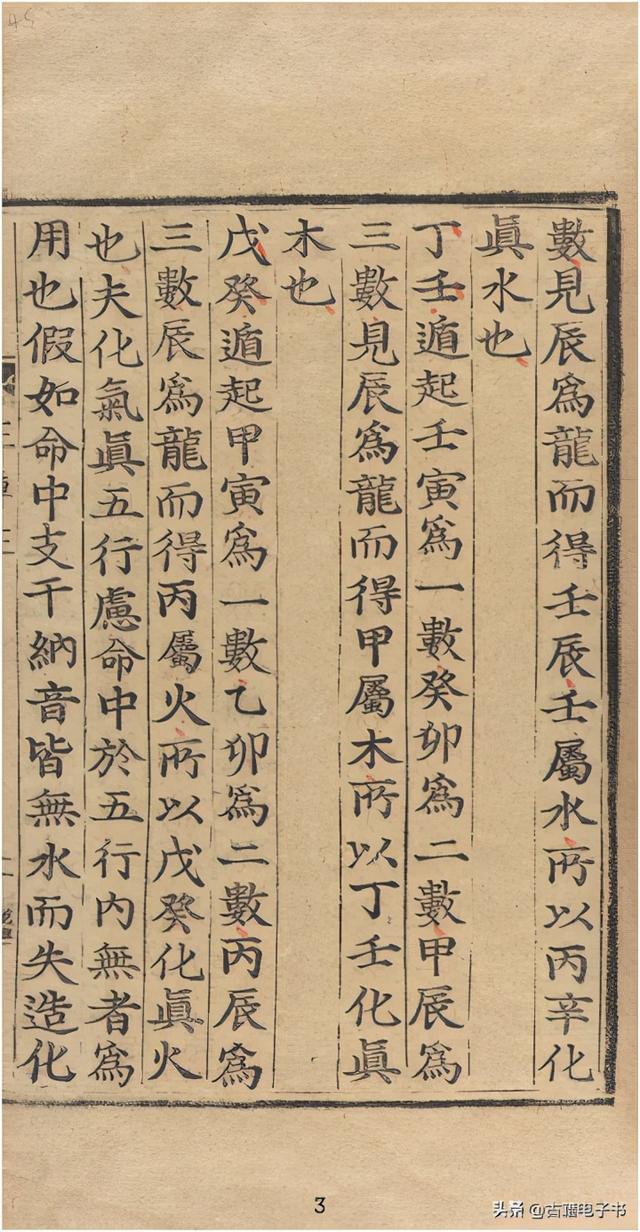 數見辰爲龍而得壬辰壬屬水所以丙辛化
眞水也
丁壬遁起壬寅爲一數癸卯爲二數甲辰爲
三數見辰爲龍而得甲屬木所以丁壬化眞
木也
戊癸遁起甲寅爲一數乙卯爲二數丙辰爲
三數辰爲龍而得丙屬火所以戊癸化眞火
也夫化氣眞五行慮命中於五行內無者爲
用也假如命中支干納音皆無水而失造化
3
头条 @古籍电子书